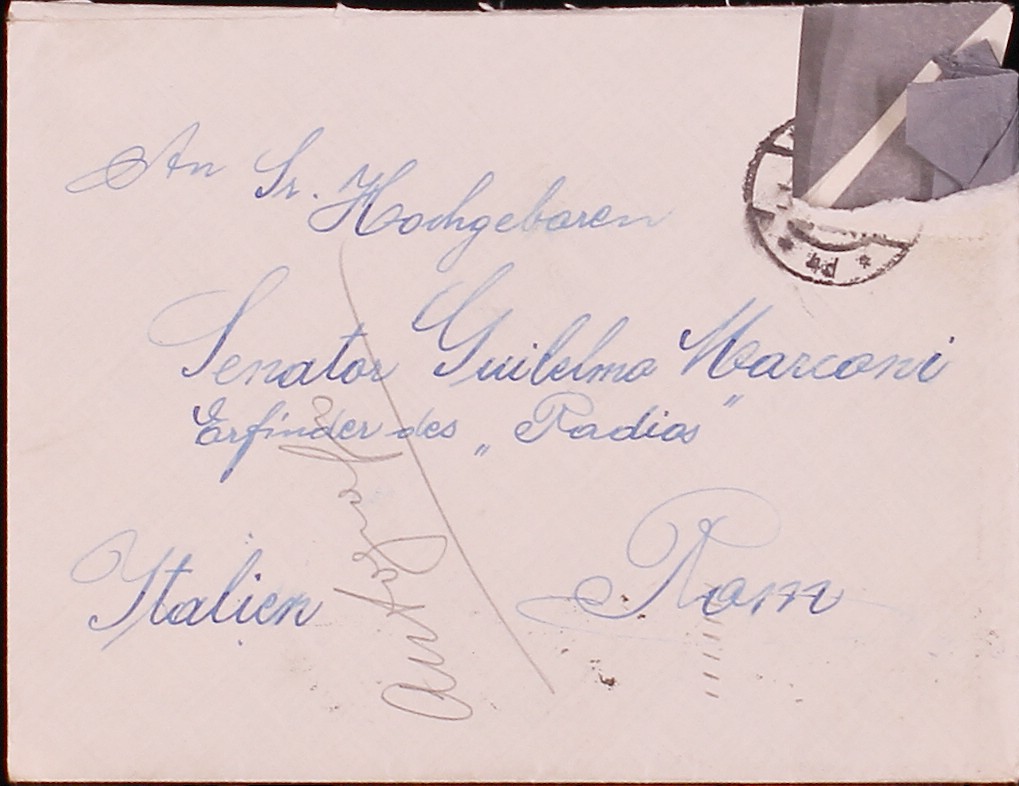 An Sr. Hochgeboren
Senator Guilelmo Marconi
Erfinder des „Radios"
Italien Rom
Autograf